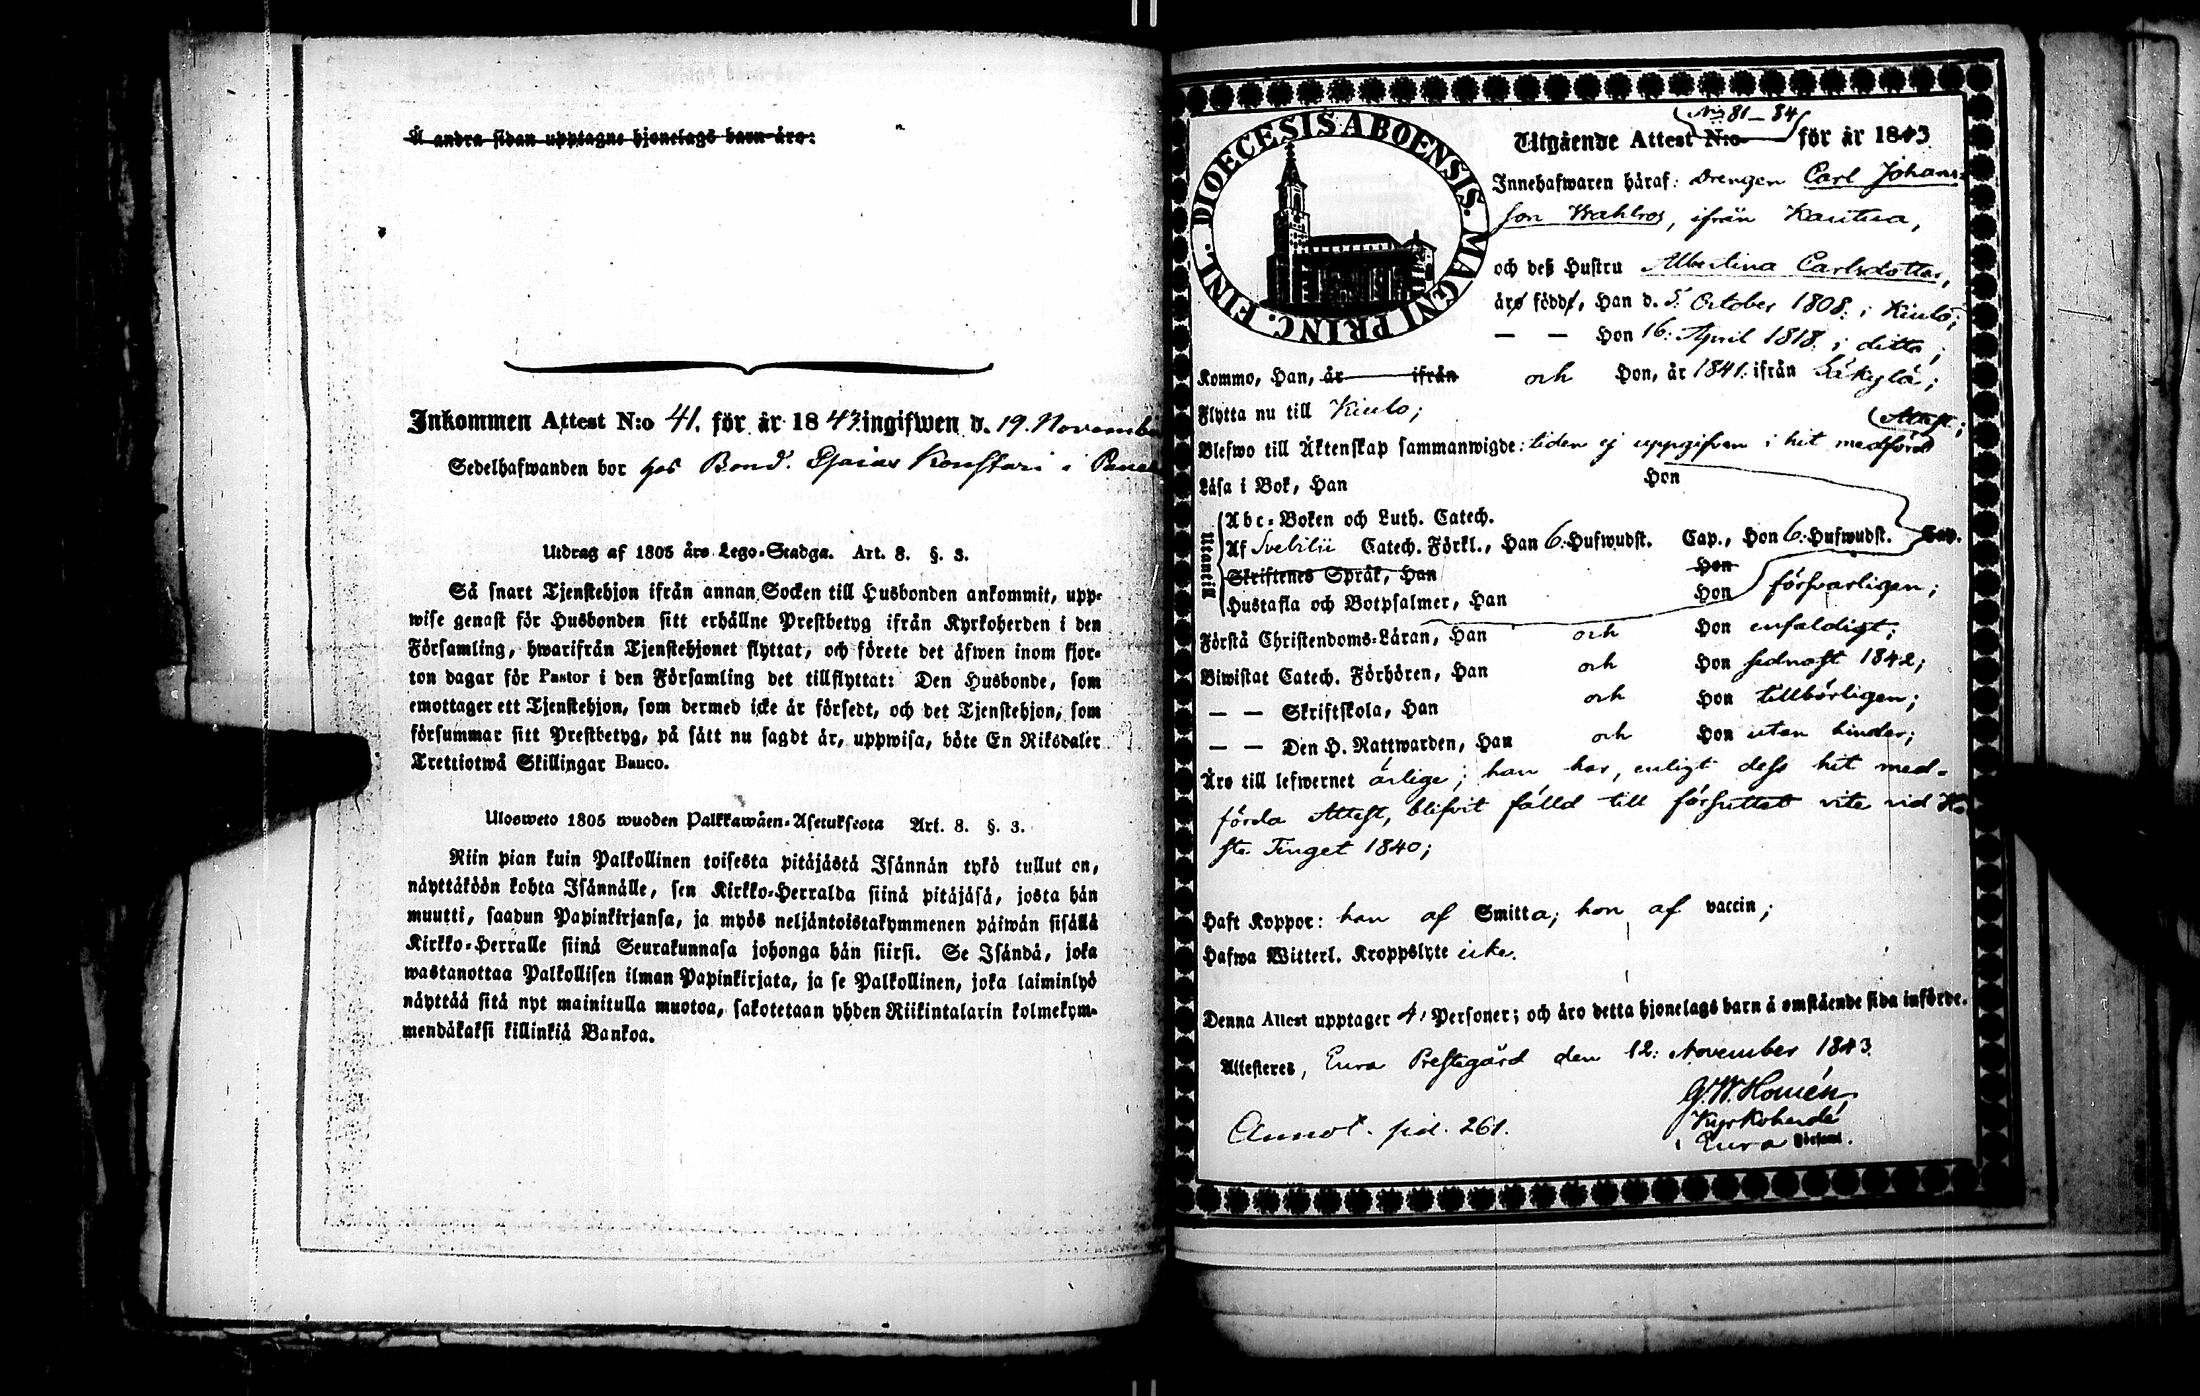 Å andra sidan upptagne hjonelags barn äro:
Inkommen Attest N:o 41. för år 1843. ingifwen d. 19. November
Sedelhafwanden bor hos Bond. Esaias Konstari i
Utdrag af 1805 års Lego-Stadga. Art. 8. §. 3.
Så snart Tjenstehjon ifrån annan Socken till Husbonden ankommit, upp-
wise genast för Husbonden sitt erhållne Prestbetyg ifrån Kyrkoherden i den
Församling, hwarifrån Tjenstehjonet flyttat, och förete det äfwen inom fjor-
ton dagar för Pastor i den Församling det tillflyttat: Den Husbonde, som
emottager ett Tjenstehjon, som dermed icke är försedt, och det Tjenstehjon, som
försummar sitt Prestbetyg, på sätt nu sagdt är, uppwisa, böte En Riksdaler
Trettiotwå Skillingar Banco.
Ulosweto 1805 wuoden Palkkawäen-Asetuksesta Art. 8. §. 3.
Niin pian kuin Palkollinen toisesta pitäjästä Isännän tykö tullut on,
näyttäköön kohta Isännälle, sen Kirkko-Herralda siinä pitäjäsä, josta hän
muutti, saadun Papinkirjansa, ja myös neljäntoistakymmenen päiwän sisällä
Kirkko-Herralle siinä Seurakunnasa johonga hän siirsi. Se Isändä, joka
wastanottaa Palkollisen ilman Papinkirjata, ja se Palkollinen, joka laiminlyö
näyttää sitä nyt mainitulla muotoa, sakotetaan yhden Riikintalarin kolmekym-
mendäkaksi killinkiä Bankoa.
DIOECESIS ABOENSIS. MAGNI PRINC. FINL.
N:is 81–84
Utgående Attest N:o för år 1843
Innehafwaren häraf: Drengen Carl Johans-
son Wahlros, ifrån Kautua,
och deß Hustru Albertina Carlsdotter,
äro födde, Han d. 5. October 1808. i Kiulo;
— — Hon 16. April 1818. i ditto;
Kommo, Han, år ifrån och Hon, år 1841. ifrån Säkylä;
Flytta nu till Kiulo;
Attest;
Blefwo till Äktenskap sammanwigde: tiden ej uppgifven i hit medförd
Läsa i Bok, Han Hon
Utantill
Abc-Boken och Luth. Catech.
Af Svebilii Catech. Förkl., Han 6. Hufwudst. Cap., Hon 6. Hufwudst. Cap.
Skriftenes Språk, Han Hon
Hustafla och Botpsalmer, Han Hon försvarligen;
Förstå Christendoms-Läran, Han och Hon enfaldigt;
Biwistat Catech. Förhören, Han och Hon sednast 1842;
— — Skriftskola, Han och Hon tillbörligen;
— — Den H. Nattwarden, Han och Hon utan hinder;
Äro till lefwernet ärlige; han har, enligt dess hit med-
förda Attest, blifvit fälld till försuttet vite vid Hö-
ste Tinget 1840;
Haft Koppor: han af Smitta; hon af vaccin;
Hafwa Witterl. Kroppslyte icke.
Denna Attest upptager 4. Personer; och äro detta hjonelags barn å omstående sida införde.
Attesteres, Eura Prestegård den 12. November 1843
G. W. Homén,
Kyrkoherde
i Eura Församl.
Annot. sid. 261.